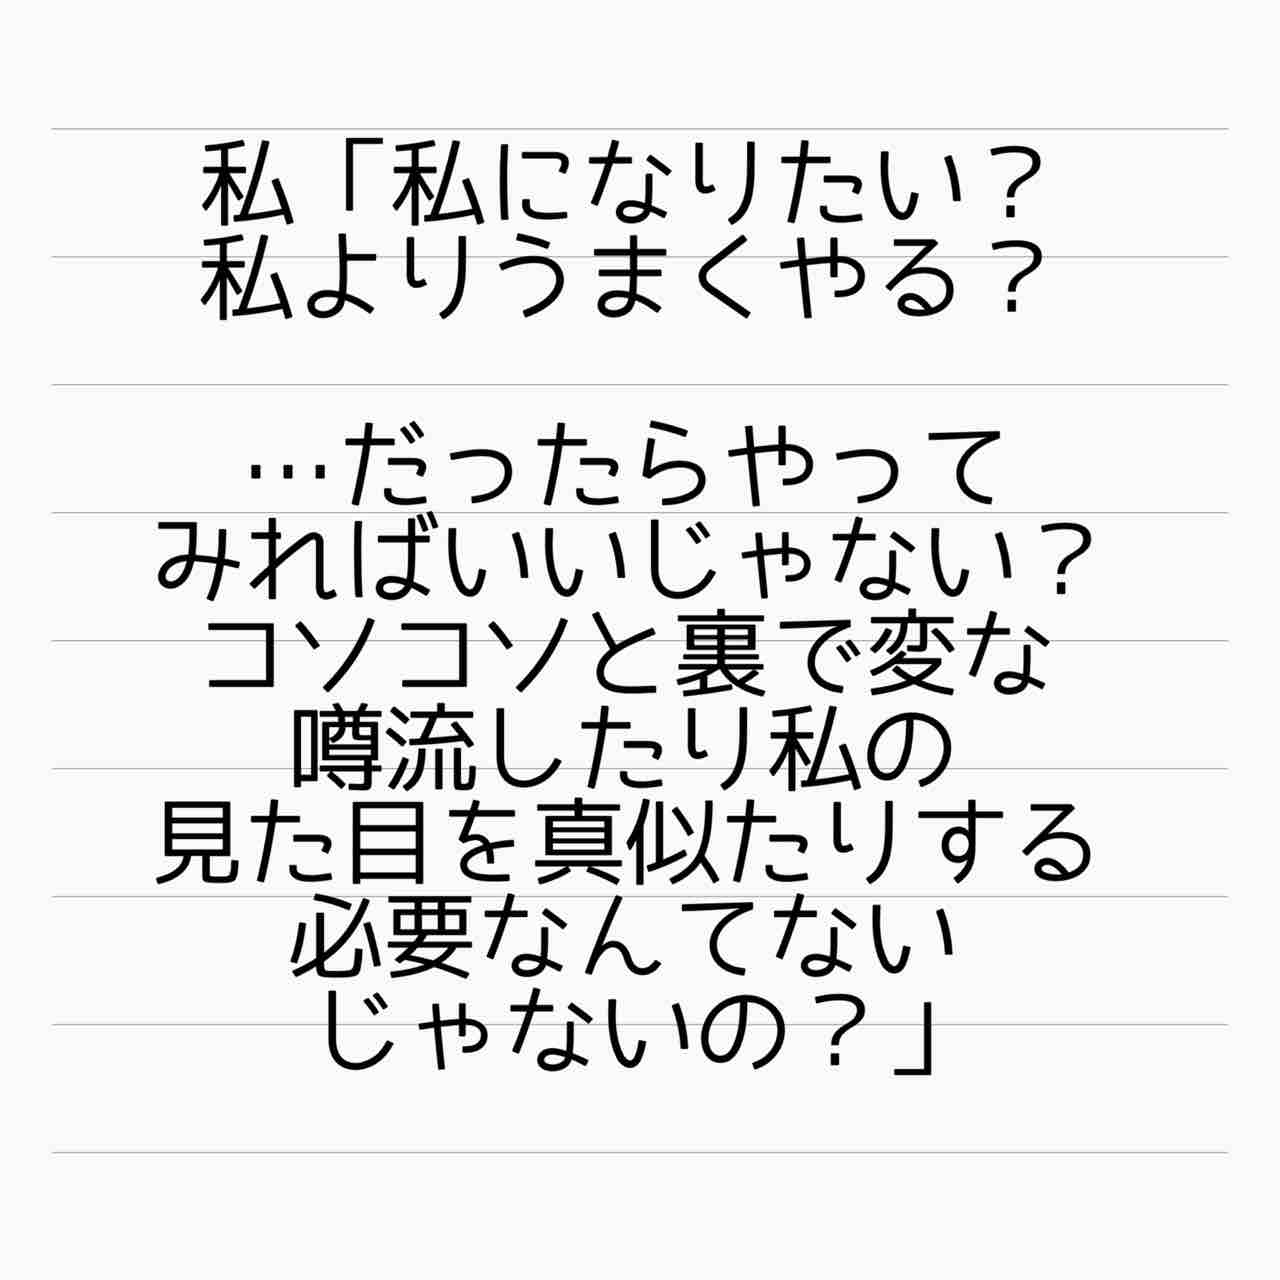 私「私になりたい？
私よりうまくやる？
…だったらやって
みればいいじゃない？
コソコソと裏で変な
噂流したり私の
見た目を真似たりする
必要なんてない
じゃないの？」